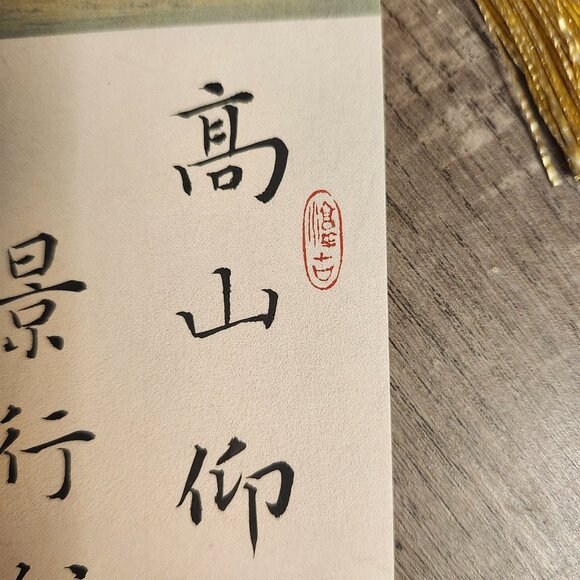 髙山仰
景行